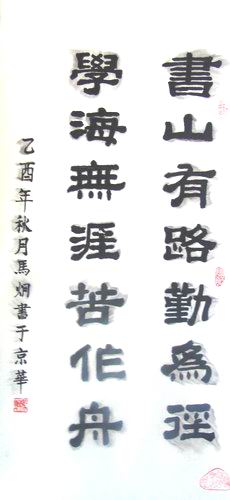 書山有路勤為徑
學海無涯苦作舟
乙酉年秋月馬炳書于京華